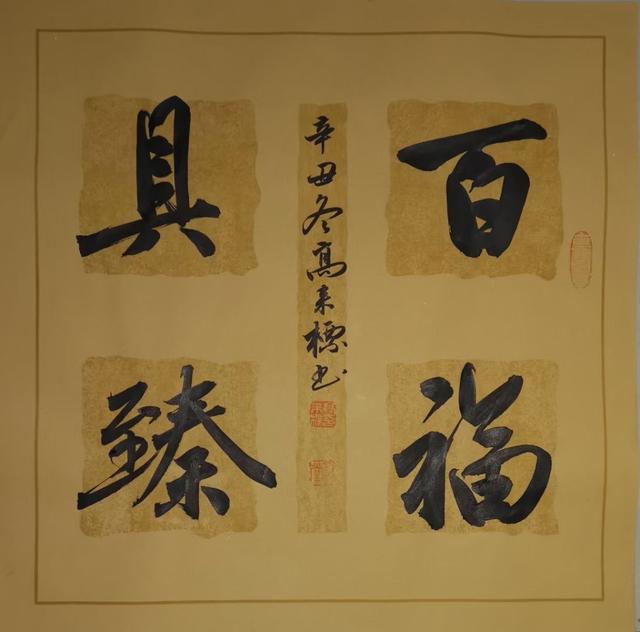 百福
具臻
辛丑冬高来標书